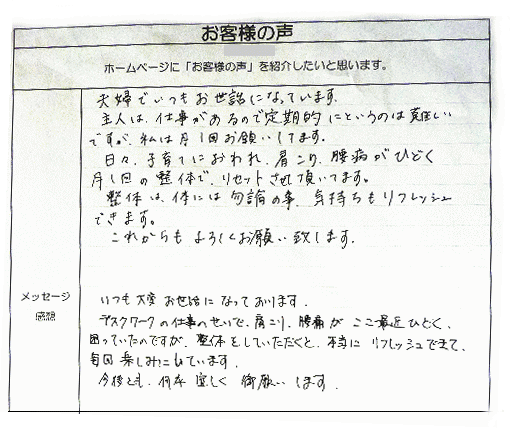 お客様の声
ホームページに「お客様の声」を紹介したいと思います。
夫婦でいつもお世話になっています。
主人は、仕事があるので定期的にというのは難しい
ですが、私は月1回お願いしてます。
日々、子育てにおわれ、肩こり、腰痛がひどく
月1回の整体で、リセットされ頂いてます。
整体は、体には勿論の事、気持ちもリフレッシュ
できます。
これからもよろしくお願い致します。
メッセージ
感想
いつも大変お世話になっております。
デスクワークの仕事のせいで、肩こり、腰痛がここ最近ひどく、
困っていたのですが、整体をしていただくと、本当にリフレッシュできて、
毎回楽しみにしています。
今後とも、何卒宜しく御願いします。